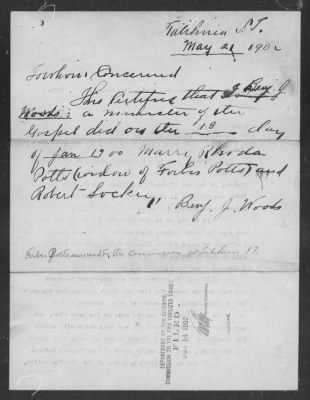 Talihina I.T.
May 21 1902
To whom Concerned
This Certifies that I Benj. J.
Woods, a minister of the
Gospel did on the 18 day
of Jan 1900 Marry Rhoda
Potts (widow of Forbis Potts) and
Robert Locke
Benj. J. Woods
Forbis Potts
the
DEPARTMENT OF THE INTERIOR,
COMMISSION TO THE FIVE CIVILIZED TRIBES.
FILED
JUN 14 1902